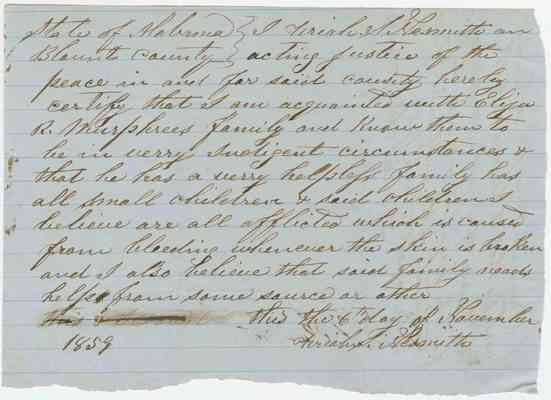 State of Alabama } I Uriah S. Nesmith an
Blount County } acting Justice of the
peace in and for said county hereby
certify that I am acquainted with Elija
R. Murphrees family and Know them to
be in verry indigent circumstances &
that he has a verry helpless family has
all small children & said children I
believe are all afflicted which is caused
from bleeding whenever the skin is broken
and I also believe that said family needs
helps from some source or other
this the 6th day of November
1859 Uriah S. Nesmith